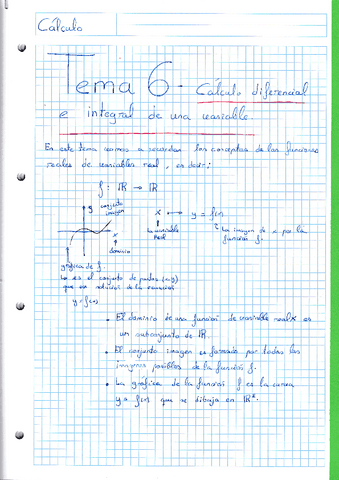 Cálculo
Tema 6 - Cálculo diferencial
e integral de una variable.
En este tema vamos a recordar los conceptos de las funciones
reales de variables real, es decir:
f: ℝ → ℝ
y conjunto
imagen
x ⟼ y = f(x)
La variable
Real
La imagen de x por la
función f.
x
dominio
gráfica de f.
es el conjunto de puntos (x,y)
que de la ecuación
y=f(x)
• El dominio de una función de variable real x es
un subconjunto de ℝ.
• El conjunto imagen es formado por todas las
imágenes posibles de la función f.
• La gráfica de la función f es la curva
y = f(x) que se dibuja en ℝ².